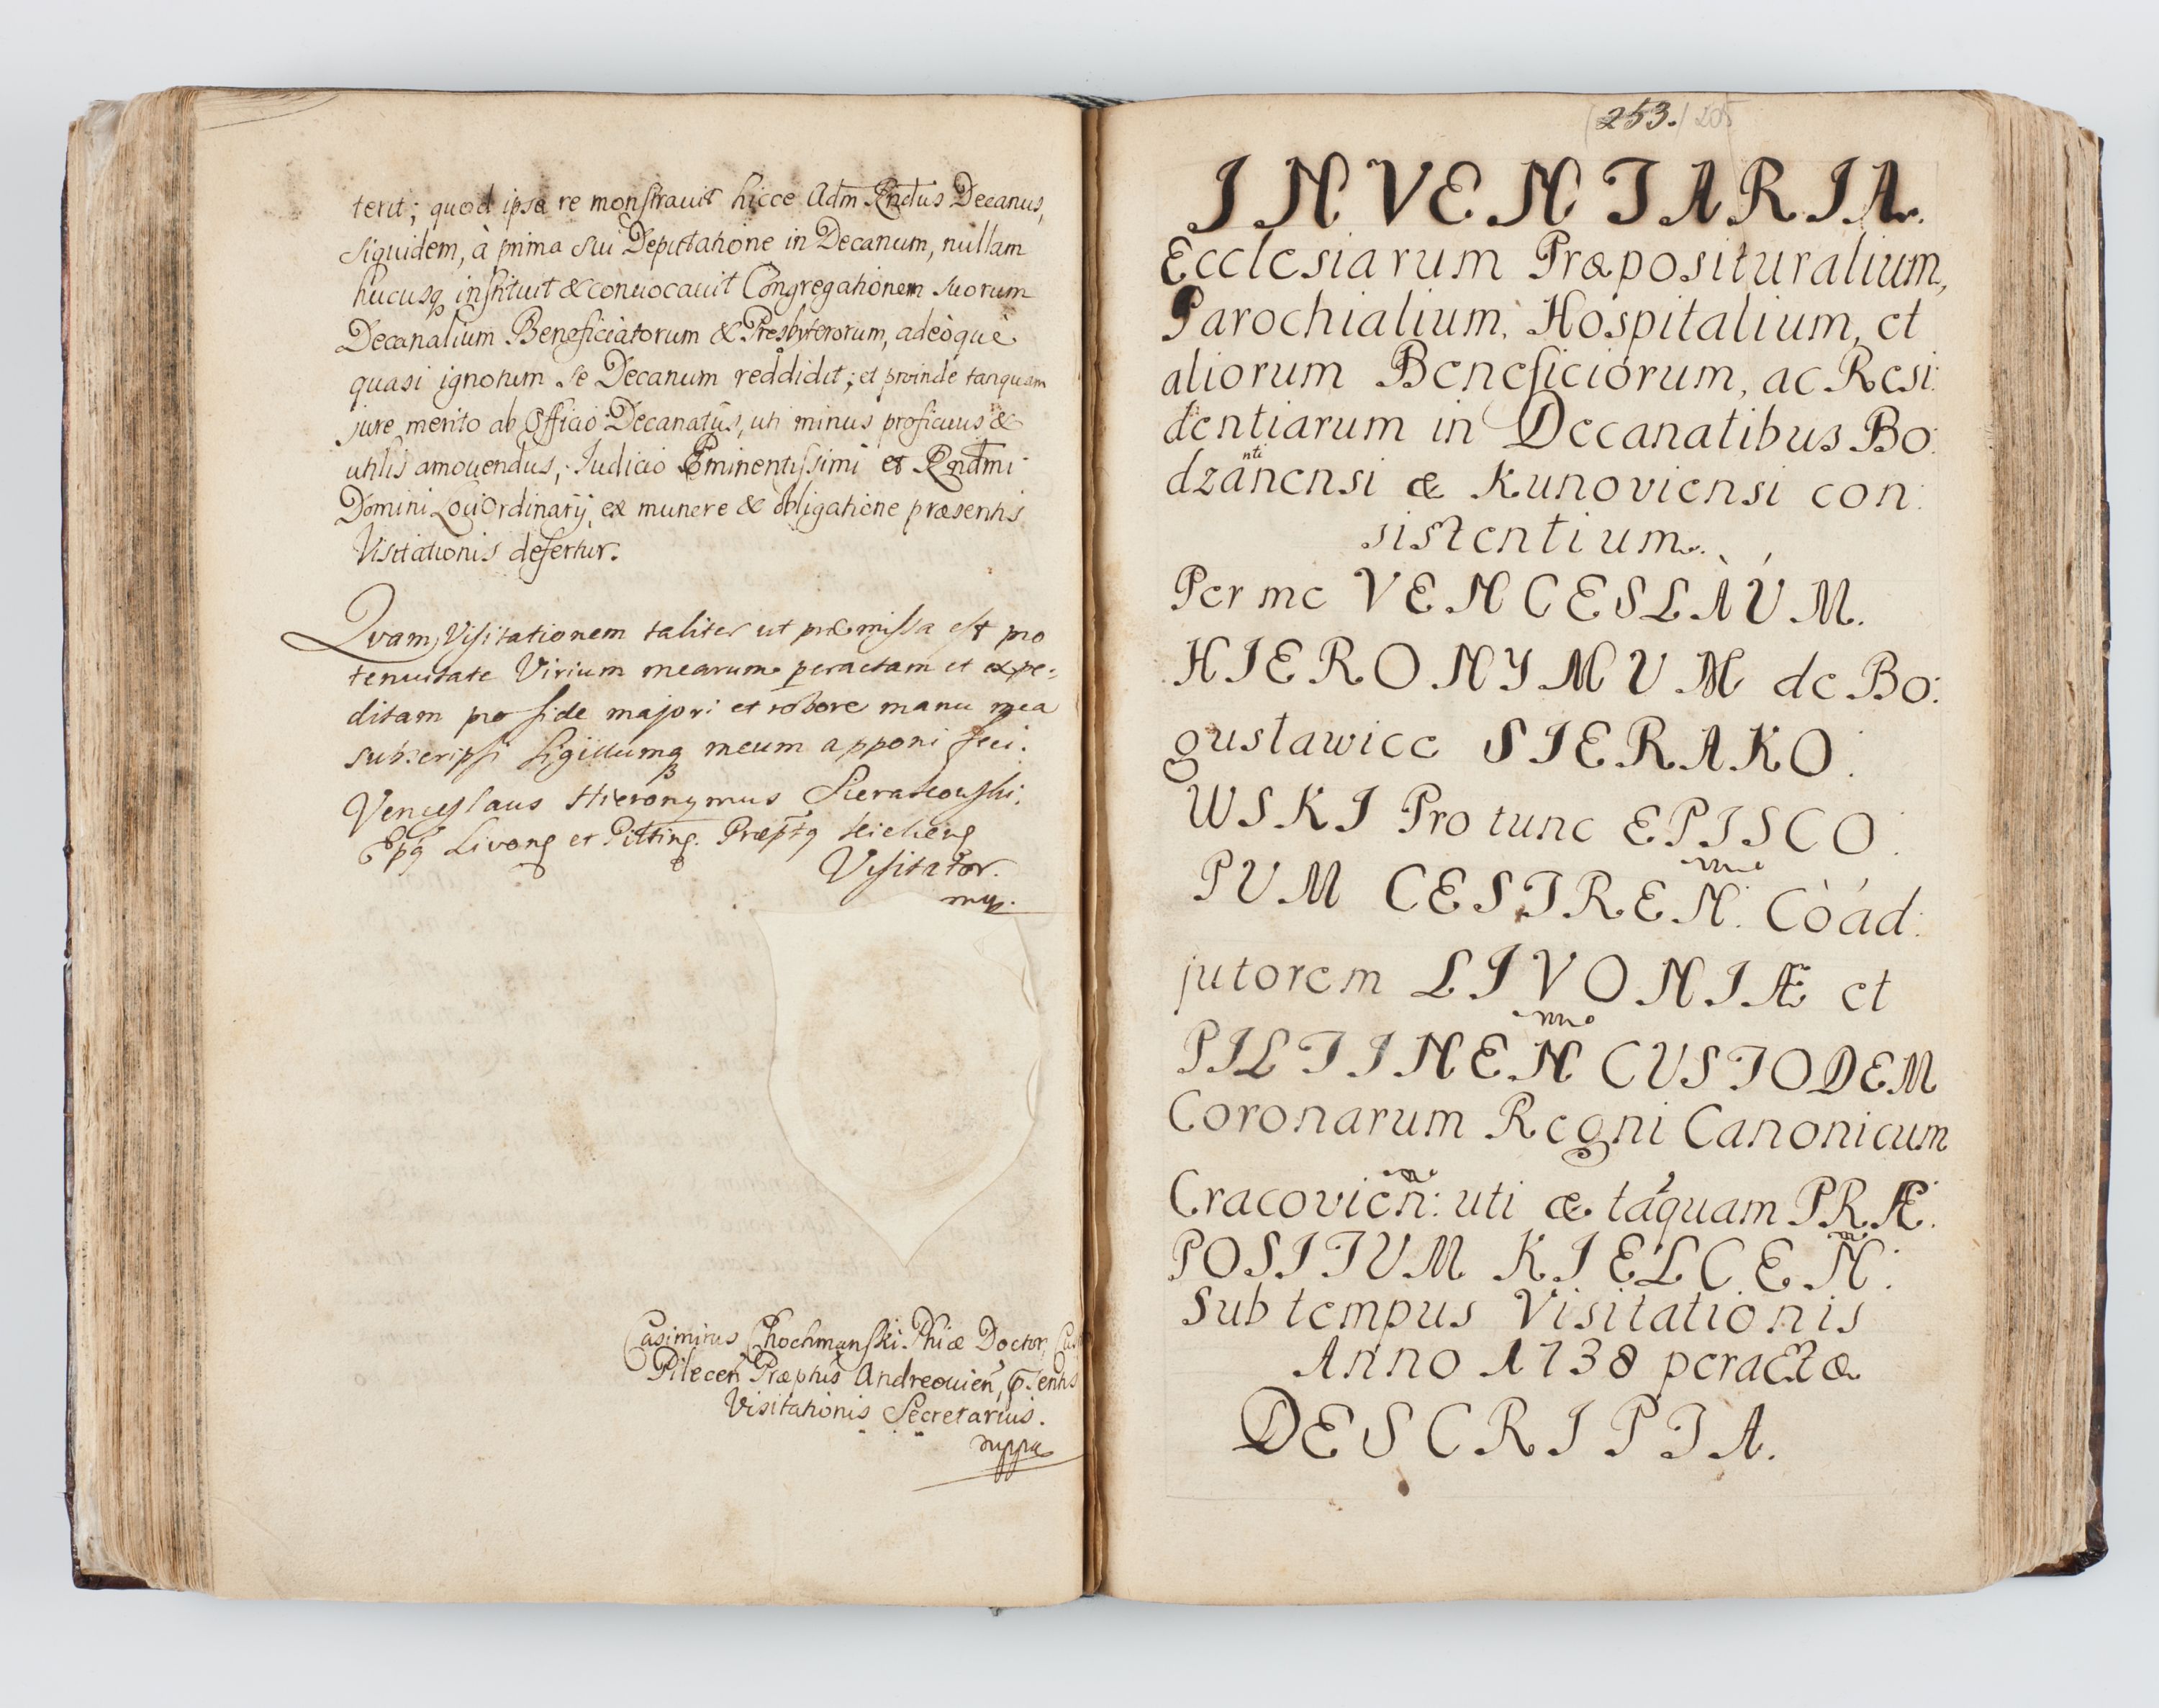 terit; quod ipsa re monstrauit hicce Adm Rndus Decanus,
siquidem, à prima sui Deputatione in Decanum, nullam
hucusq instituit & conuocauit Congregationem suorum
Decanalium Beneficiatorum & Presbyterorum, adeoque
quasi ignotum se Decanum reddidit; et proinde tanquam
jure merito ab Officio Decanatûs, uti minus proficuus &
utilis amouendus, Iudicio Eminentissimi et Rndmi
Domini Loci Ordinarij, ex munere & obligatione præsentis
Visitationis defertur.
Qvam Visitationem taliter ut præmissa est pro
tenuitate Virium mearum peractam et expe:
ditam pro fide majori et robore manu mea
subscripsi sigillumq meum apponi feci.
Venceslaus Hieronymus Sierakowski.
Epq Livonq et Piltinq. Præptq
Visitator.
mp.
Casimirus Chochmanski Phiæ Doctor,
Pilecen Præptus Andreouien,
Visitationis Secretarius.
mppa
(253.) 205
INVENTARIA.
Ecclesiarum Præposituralium,
Parochialium, Hospitalium, et
aliorum Beneficiorum, ac Resi:
dentiarum in Decanatibus Bo:
dzanensi & Kunoviensi con:
nti
sistentium.
Per me VENCESLÀÚM.
HIERONYMUM de Bo:
gusławice SIERAKO:
WSKI Pro tunc EPISCO:
PUM CESTREN. Còád:
jutorem LIVONIÆ et
PILTINEN CUSTODEM
Coronarum Regni Canonicum
Cracovien: uti & táquam PRÆ:
POSITUM KIELCEN:
Sub tempus Visitationis
Anno 1738 peractæ
DESCRIPTA.